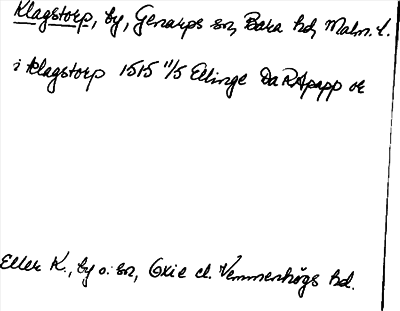 Klagstorp, by, Genarps sn, Bara hd, Malm. l.
i klagstorp 1515 11/5 Ellinge Da RA papp or
Eller K., by o. sn, Oxie el. Vemmenhögs hd.